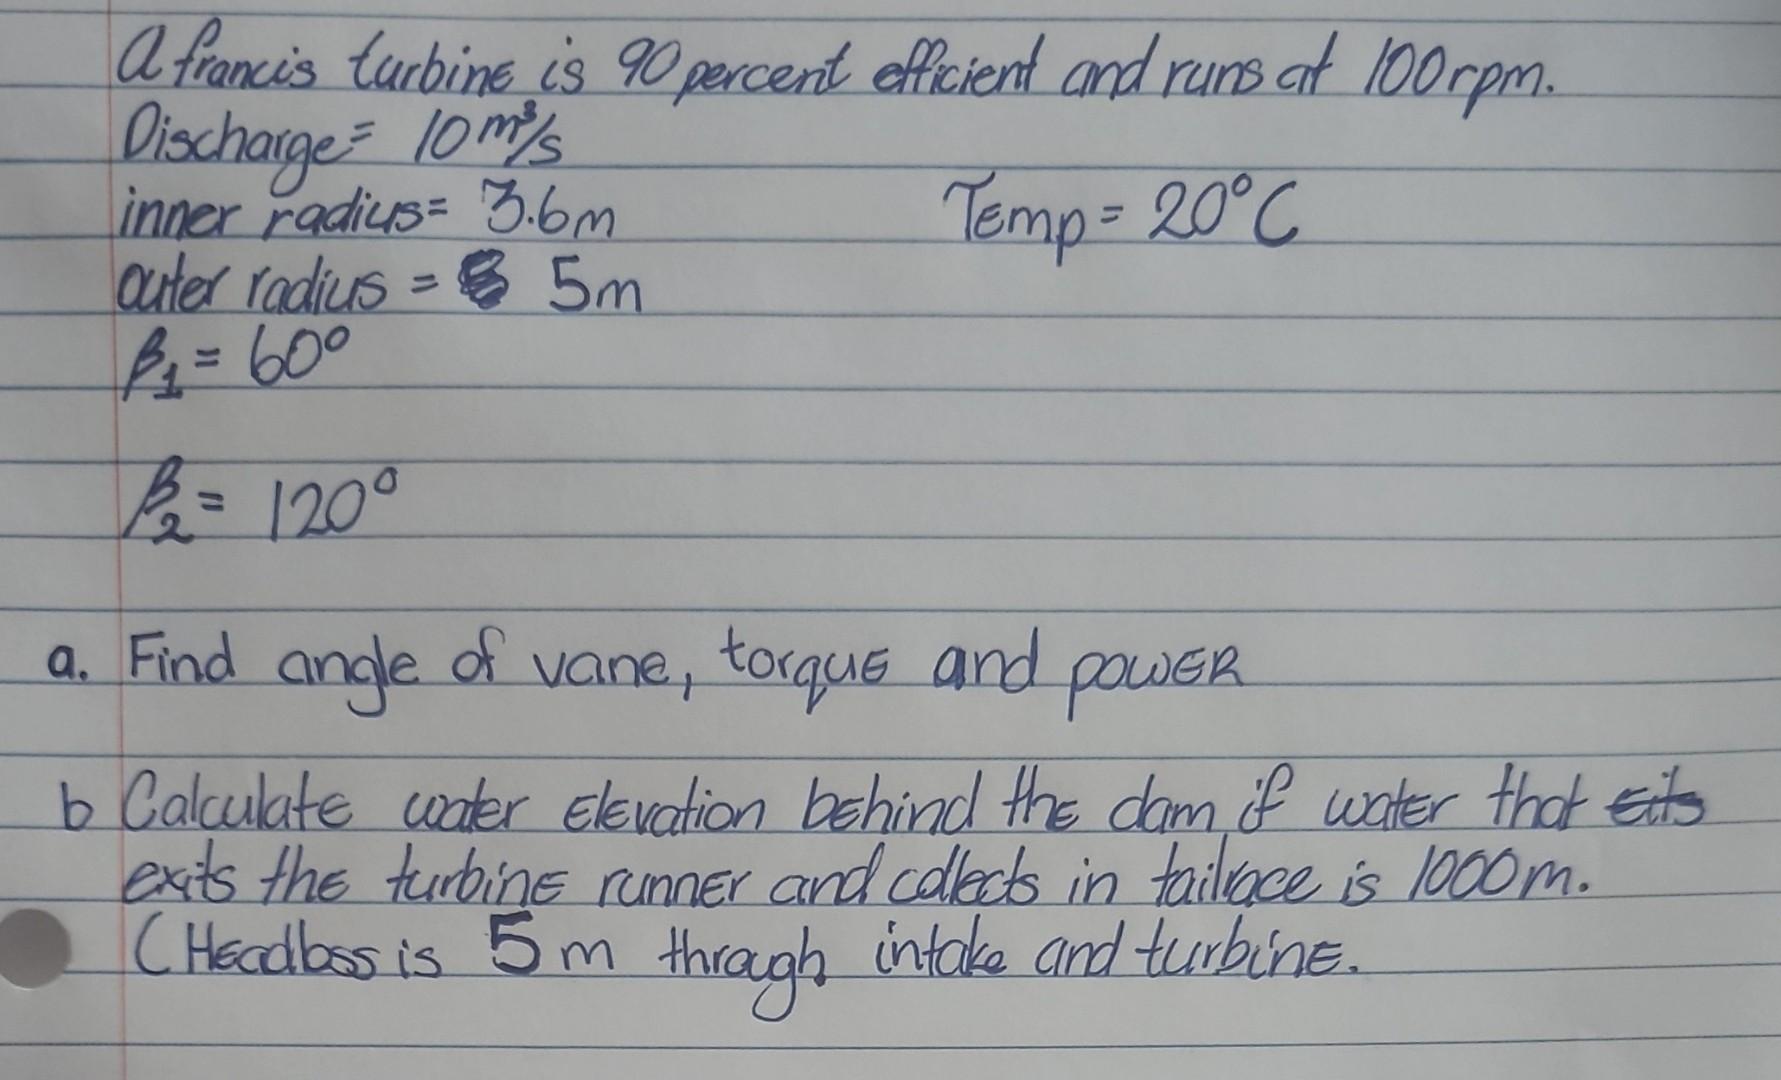 A francis turbine is 90 percent efficient and runs at 100rpm.
Discharge = 10 m³/s
inner radius = 3.6m
Temp = 20°C
outer radius = 5m
β₁ = 60°
β₂ = 120°
a. Find angle of vane, torque and power
b Calculate water elevation behind the dam if water that
exits the turbine runner and collects in tailrace is 1000m.
(Headloss is 5m through intake and turbine.